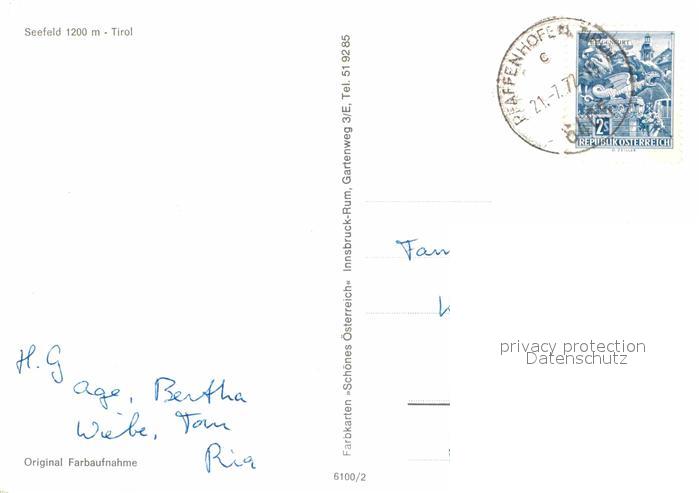 Seefeld 1200 m - Tirol
H. G
age, Bertha
Wiebe, Tom
Ria
Original Farbaufnahme
Farbkarten »Schönes Österreich« Innsbruck-Rum, Gartenweg 3/E, Tel. 51 92 85
6100/2
PFAFFENHOFEN, TIROL
c
21.-7.7
2S
REPUBLIK ÖSTERREICH
Fam
privacy protection
Datenschutz